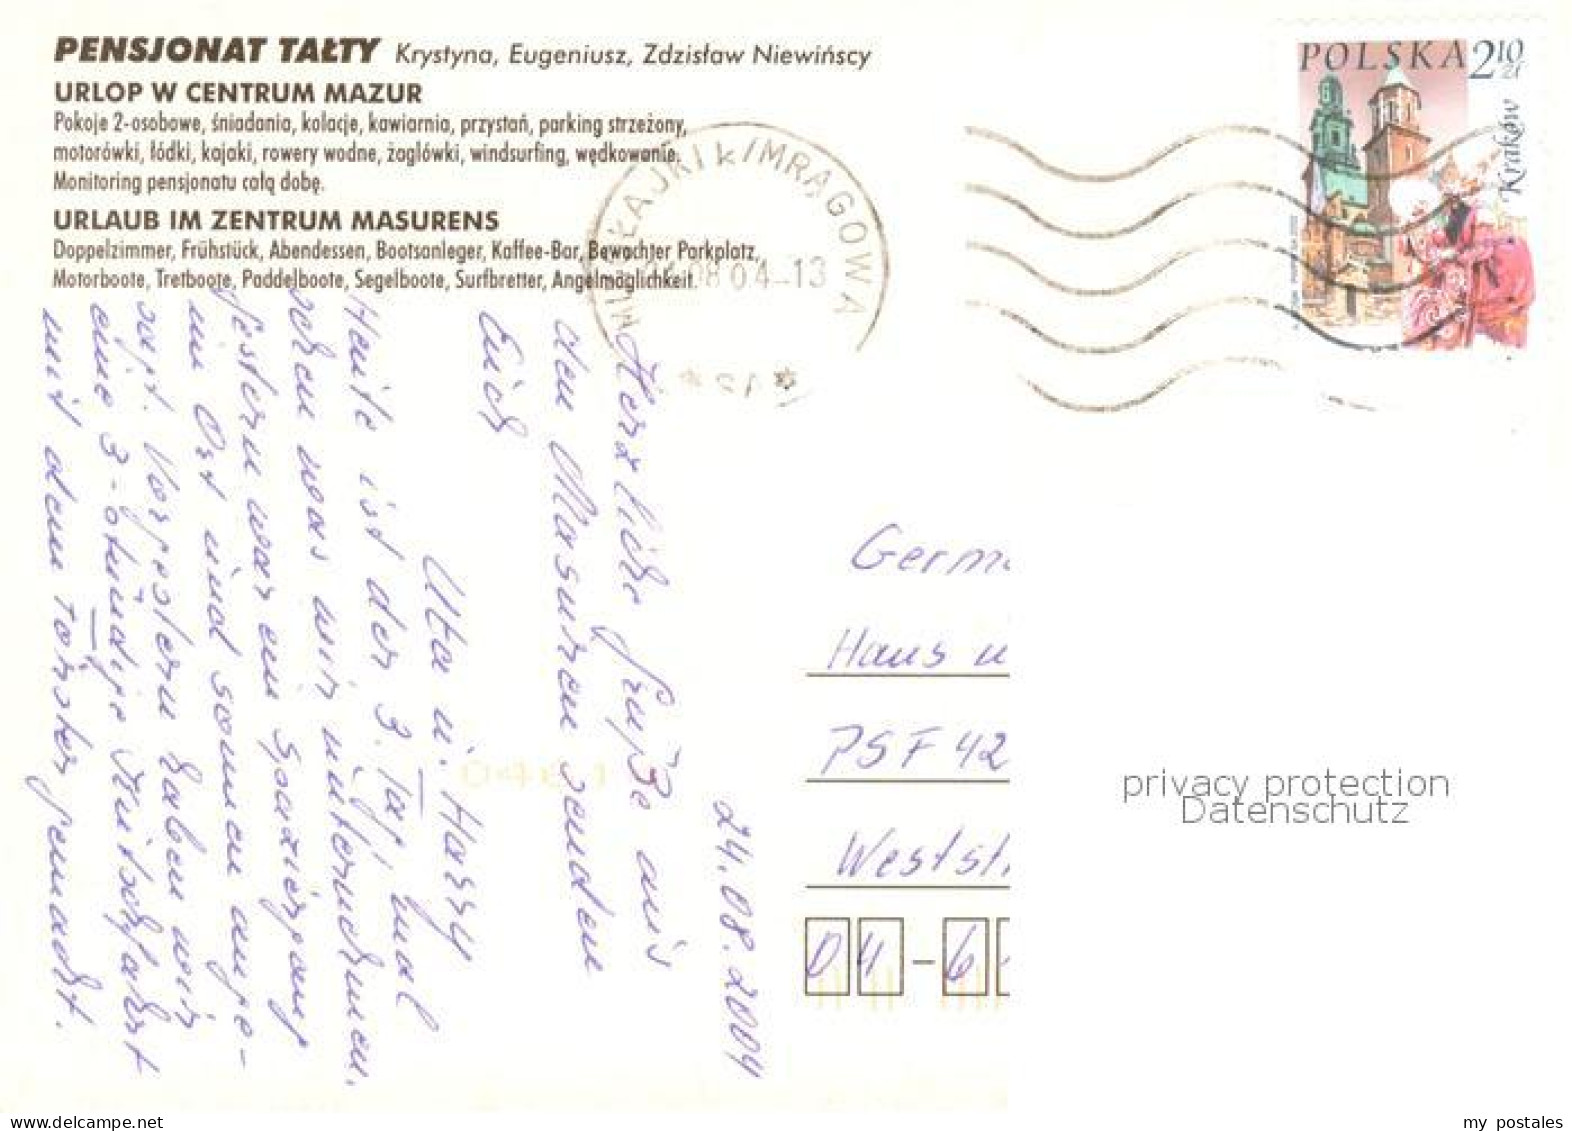 PENSJONAT TAŁTY Krystyna, Eugeniusz, Zdzisław Niewińscy
URLOP W CENTRUM MAZUR
Pokoje 2-osobowe, śniadania, kolacje, kawiarnia, przystań, parking strzeżony,
motorówki, łódki, kajaki, rowery wodne, żaglówki, windsurfing, wędkowanie.
Monitoring pensjonatu całą dobę.
URLAUB IM ZENTRUM MASURENS
Doppelzimmer, Frühstück, Abendessen, Bootsanleger, Kaffee-Bar, Bewachter Parkplatz,
Motorboote, Tretboote, Paddelboote, Segelboote, Surfbretter, Angelmöglichkeit.
POLSKA 210 zł
Kraków
MIKOŁAJKI k/MRĄGOWA
08 04-13
24.08.2004
Herzliche Grüße aus
den Masuren senden
Euch
Uta u. Harry
Heute ist der 3. Tag, mal
sehen was wir unternehmen.
Gestern waren Spaziergang
im Ort und sonnen ange-
sagt. Vorgestern haben wir
eine 3-stündige Kutschfahrt
mit dem Förster gemacht.
Germ
Haus u
PSF 42
Westst
04-6
privacy protection
Datenschutz
www.delcampe.net
my_postales